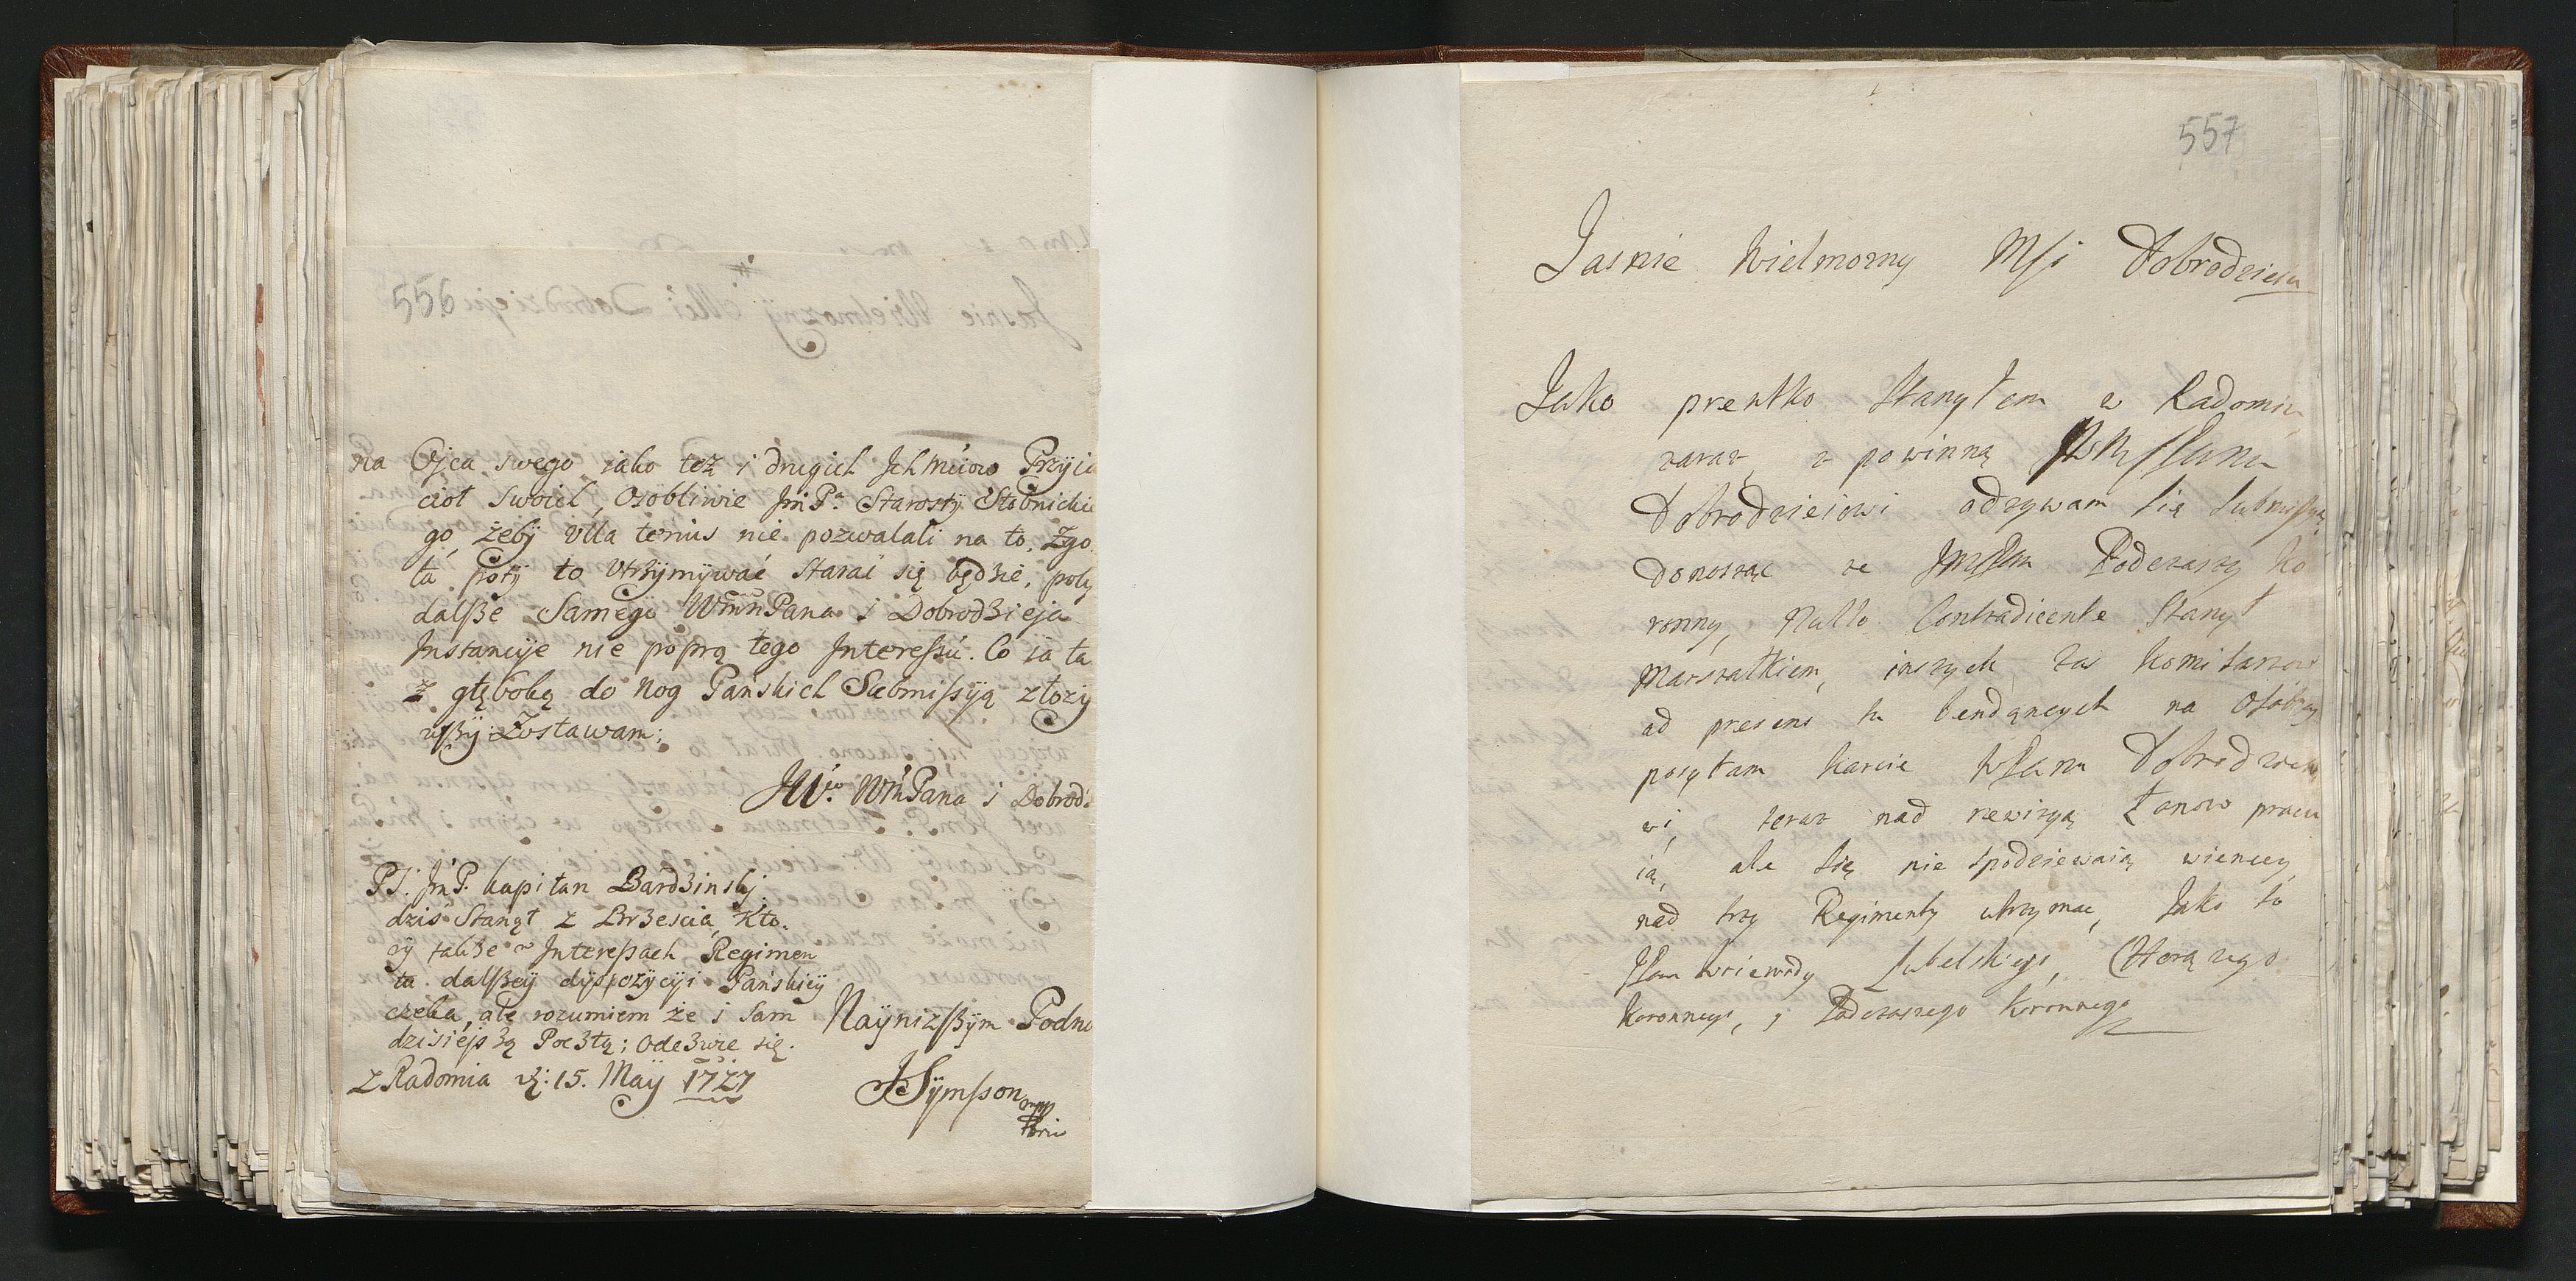 na Ojca swego iako też i drugich Jchmciow Przyia
ciol swoich, osobliwie JmP.ª Starosty Stobnickie
go żebÿ ulla tenus nie pozwalali na to, Zgo
ła, potÿ to utrzÿmÿwać starać się będzie, poty
dalſze Samego WmmPana i Dobrodzieja
Jnstancÿe nie poprą tego Jntereſsu. Co ia tu
z głęboką do nog Pańskich Submiſsÿą złoży
wſzÿ Zostawam;
JW.º WmPana i Dobrodz
PS. JmP. kapitan Bardzinskj
dziś Stanął z Brześcia, Kto-
rÿ takze w Jntereſsach Regimen
tu dalſzeÿ dÿspozÿcÿi Pańskieÿ
czeka, ale rozumiem że i sam
dzisiejszą Pocztą; Odezwie się.
Naÿnizſzÿm Podno
z Radomia d: 15. Maÿ 1727
JSÿmſson mpp
556
557
Jasnie Wielmozny Mſi Dobrodzieiu
Jako prentko stanyłem w Radomiu
zaraz, z powinną JWMſPanu
Dobrodzieiowi odzywam się submiſsyą
donosząc ze JmſPan Podczaszy Ko
ronny, Nullo Contradicente stanył
Marszałkiem, inszych zas komisarzow
ad presens tu bendących na osobny
posyłam karcie WPanu Dobrodzieio
wi, teraz nad rewizyą Łanow pracu
ią, ale się nie spodziewaią wiencey
nad trzy Regimenty utrzymac, Jako to
JPana woiewody Lubelskiego, Chorązego
Koronnego, y Podczaszego Koronnego